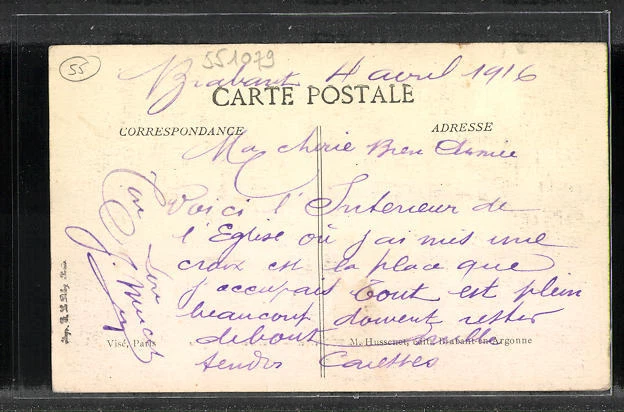 55
551079
Brabant 4 avril 1916
CARTE POSTALE
CORRESPONDANCE
ADRESSE
Ma cherie Bien Aimée
Voici l'Interieur de
l'Eglise où j'ai mis une
croix est la place que
j'occupais Tout est plein
beaucoup doivent rester
debout Mille
tendres Caresses
Ton
Visé, Paris
M. Hussenet, édit. Brabant-en-Argonne